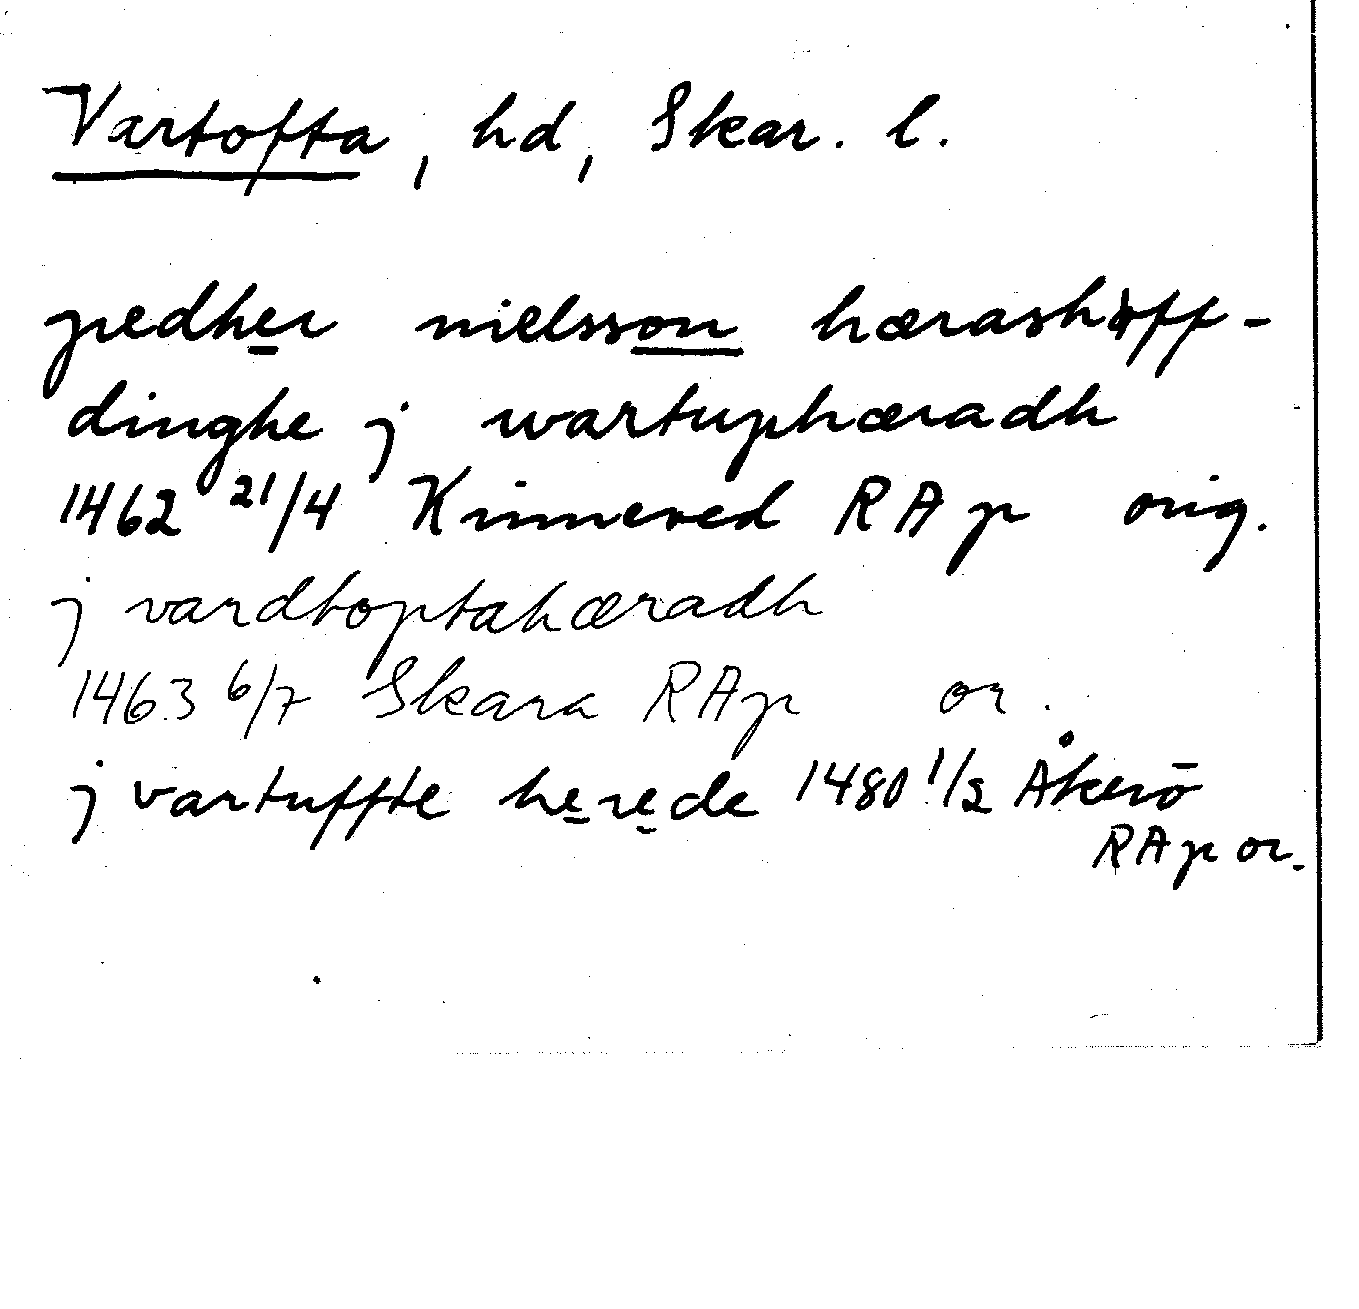 Vartofta, hd, Skar. l.
pedher nielsson hærashøff-
dinghe j wartuphæradh
1462 21/4 Kinneved RAp orig.
j vardtoptahæradh
1463 6/7 Skara RAp or.
j vartuffte herede 1480 1/2 Åkerö
RAp or.